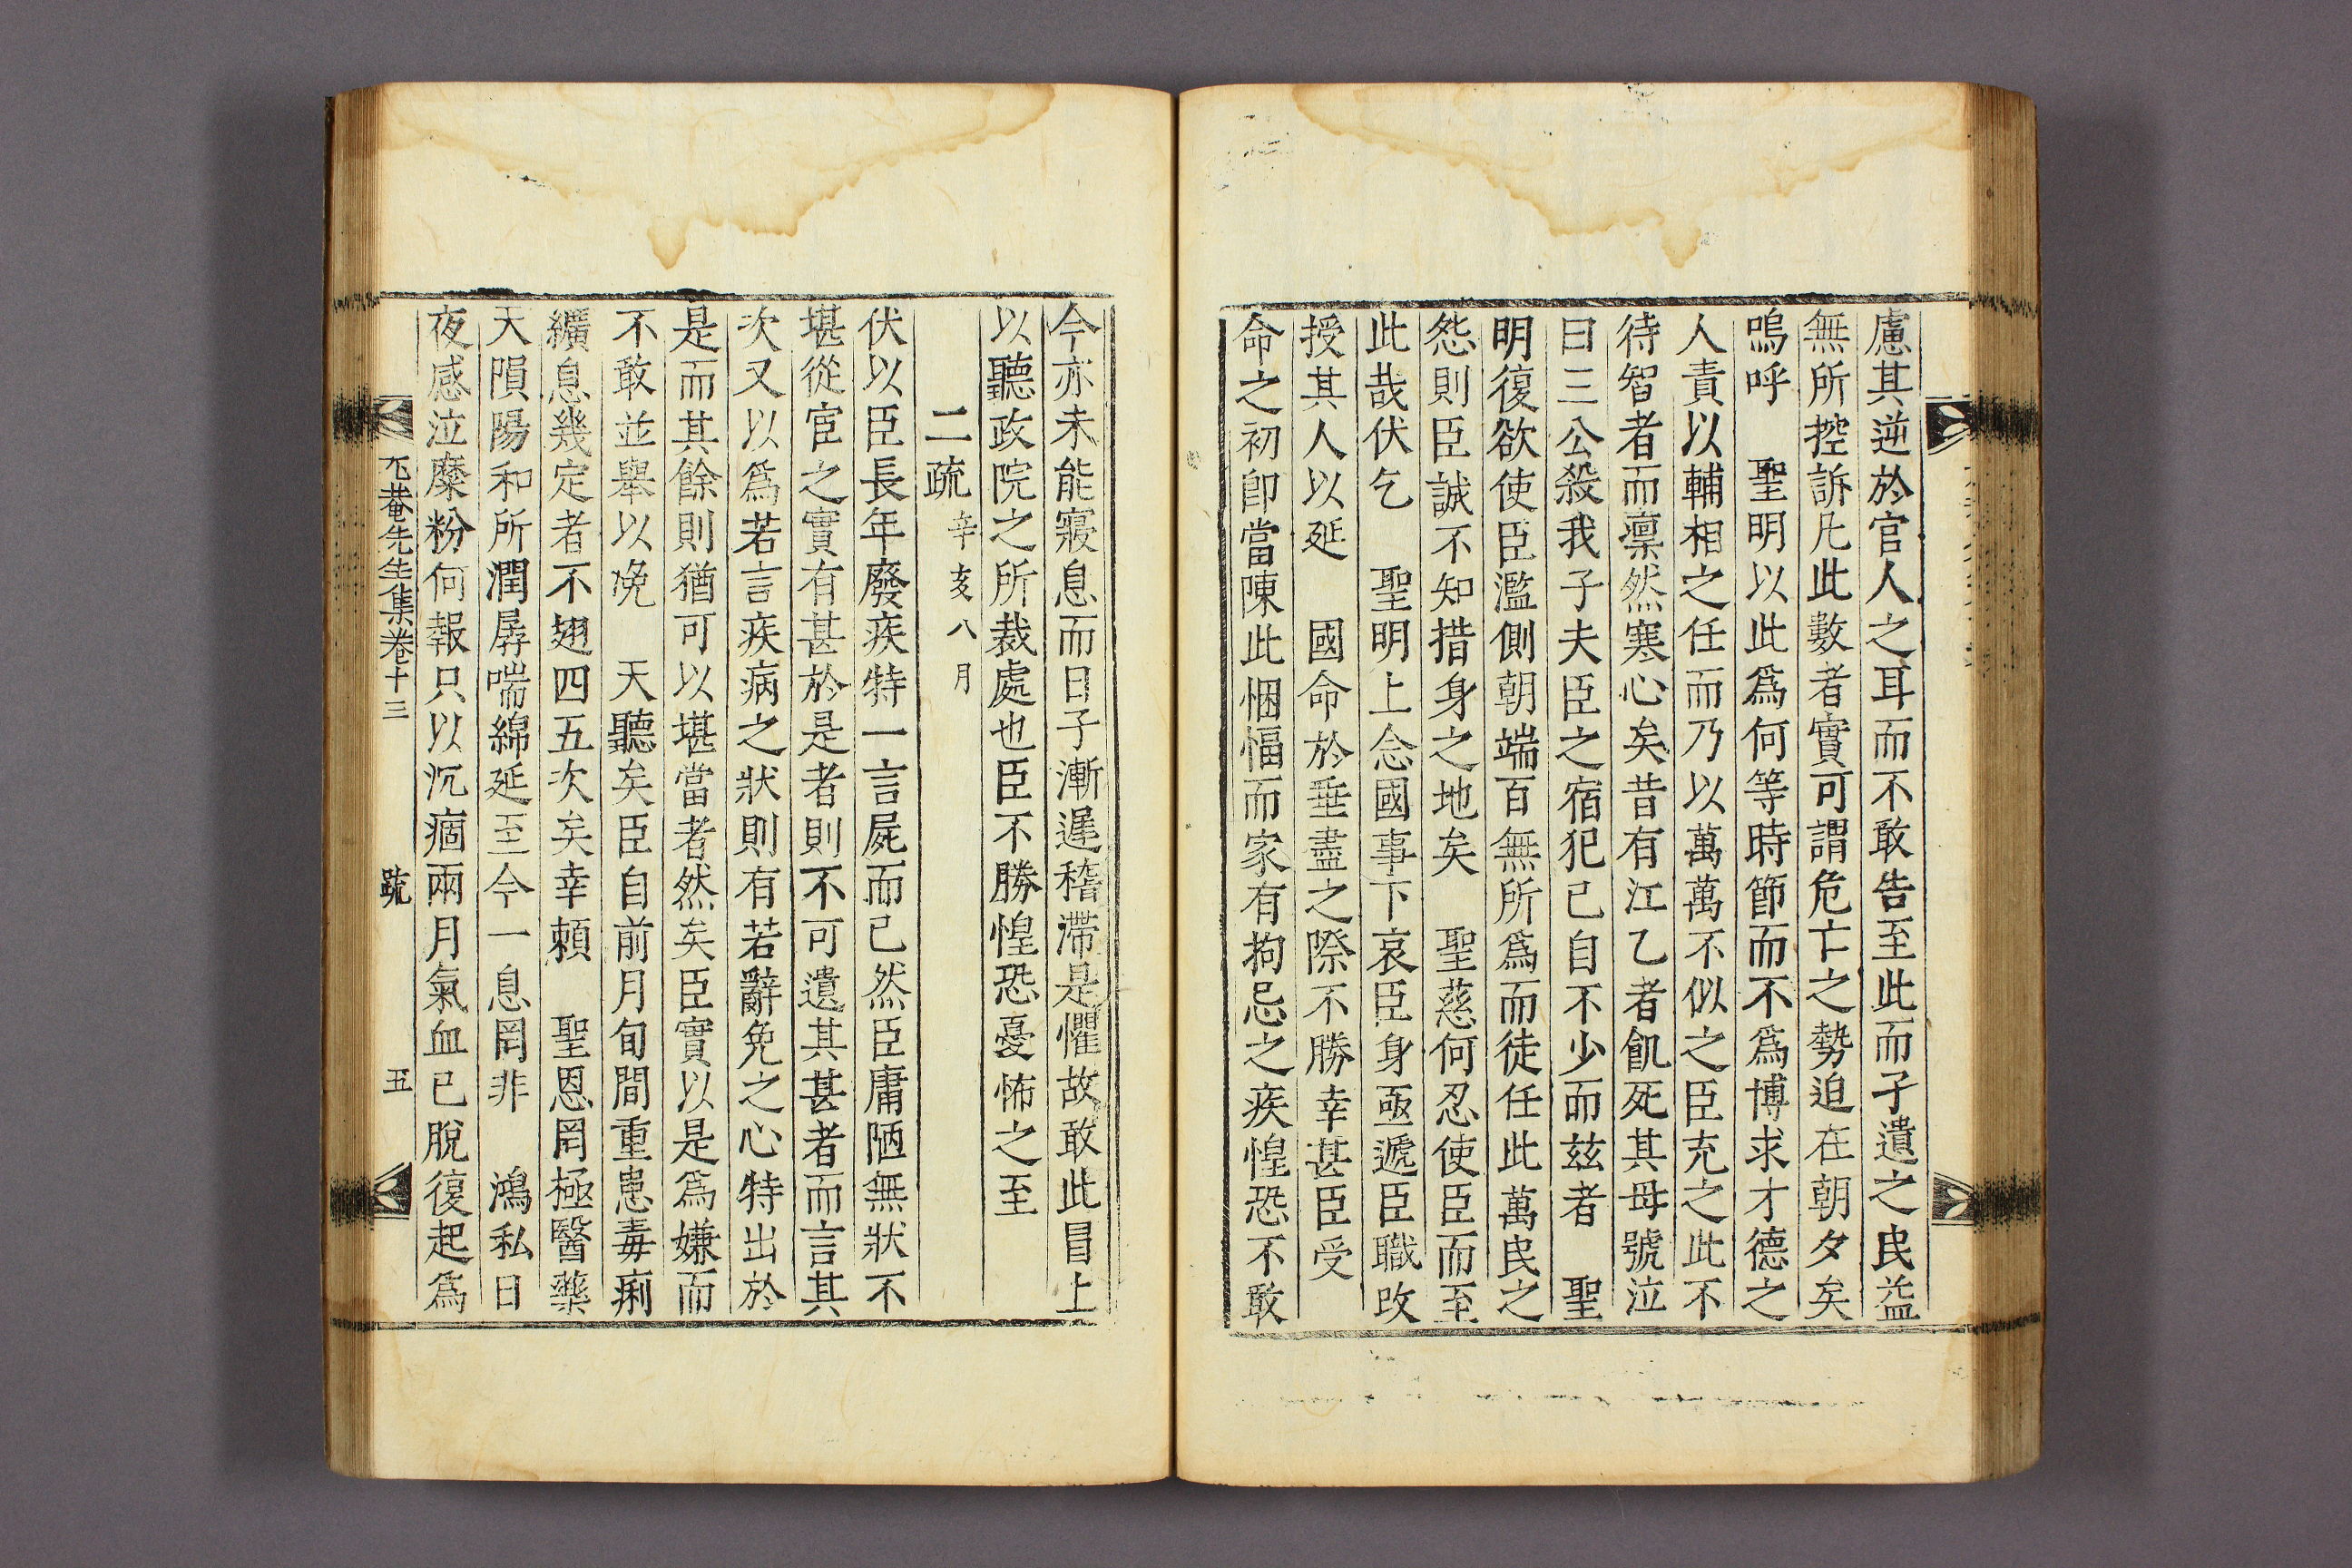 慮其逆於官人之耳而不敢告至此而孑遺之民益
無所控訴凡此數者實可謂危亡之勢迫在朝夕矣
嗚呼　聖明以此爲何等時節而不爲博求才德之
人責以輔相之任而乃以萬萬不似之臣充之此不
待智者而凛然寒心矣昔有江乙者飢死其母號泣
曰三公殺我子夫臣之宿犯已自不少而玆者　聖
明復欲使臣濫側朝端百無所爲而徒任此萬民之
怨則臣誠不知措身之地矣　聖慈何忍使臣而至
此哉伏乞　聖明上念國事下哀臣身亟遞臣職改
授其人以延　國命於垂盡之際不勝幸甚臣受
命之初卽當陳此悃愊而家有拘忌之疾惶恐不敢
今亦未能寢息而日子漸遲稽滯是懼故敢此冒上
以聽政院之所裁處也臣不勝惶恐憂怖之至
二疏 辛亥八月
伏以臣長年廢疾特一言屍而已然臣庸陋無狀不
堪從宦之實有甚於是者則不可遺其甚者而言其
次又以爲若言疾病之狀則有若辭免之心特出於
是而其餘則猶可以堪當者然矣臣實以是爲嫌而
不敢並舉以浼　天聽矣臣自前月旬間重患毒痢
纊息幾定者不翅四五次矣幸賴　聖恩罔極醫藥
天隕陽和所潤孱喘綿延至今一息罔非　鴻私日
夜感泣糜粉何報只以沉痼兩月氣血已脫復起爲
尤菴先生集卷十三　疏　五